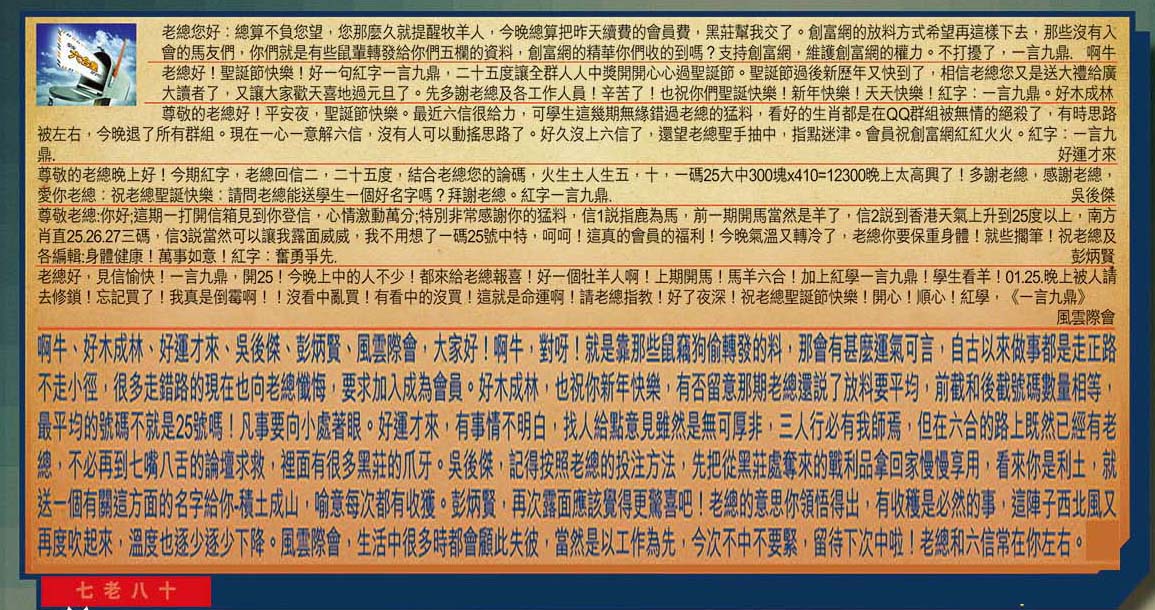 老總您好：總算不負您望，您那麼久就提醒牧羊人，今晚總算把昨天續費的會員費，黑莊幫我交了。創富網的放料方式希望再這樣下去，那些沒有入
會的馬友們，你們就是有些鼠輩轉發給你們五欄的資料，創富網的精華你們收的到嗎？支持創富網，維護創富網的權力。不打擾了，一言九鼎. 啊牛
老總好！聖誕節快樂！好一句紅字一言九鼎，二十五度讓全群人人中獎開開心心過聖誕節。聖誕節過後新歷年又快到了，相信老總您又是送大禮給廣
大讀者了，又讓大家歡天喜地過元旦了。先多謝老總及各工作人員！辛苦了！也祝你們聖誕快樂！新年快樂！天天快樂！紅字：一言九鼎。好木成林
尊敬的老總好！平安夜，聖誕節快樂。最近六信很給力，可學生這幾期無緣錯過老總的猛料，看好的生肖都是在QQ群組被無情的絕殺了，有時思路
被左右，今晚退了所有群組。現在一心一意解六信，沒有人可以動搖思路了。好久沒上六信了，還望老總聖手抽中，指點迷津。會員祝創富網紅紅火火。紅字：一言九
鼎. 好運才來
尊敬的老總晚上好！今期紅字，老總回信二，二十五度，結合老總您的論碼，火生土人生五，十，一碼25大中300塊x410=12300晚上太高興了！多謝老總，感謝老總，
愛你老總：祝老總聖誕快樂：請問老總能送學生一個好名字嗎？拜謝老總。紅字一言九鼎. 吳後傑
尊敬老總:你好;這期一打開信箱見到你登信，心情激動萬分;特別非常感謝你的猛料，信1說指鹿為馬，前一期開馬當然是羊了，信2說到香港天氣上升到25度以上，南方
肖直25.26.27三碼，信3說當然可以讓我露面威威，我不用想了一碼25號中特，呵呵！這真的會員的福利！今晚氣溫又轉冷了，老總你要保重身體！就些擱筆！祝老總及
各編輯:身體健康！萬事如意！紅字：奮勇爭先. 彭炳賢
老總好，見信愉快！一言九鼎，開25！今晚上中的人不少！都來給老總報喜！好一個牡羊人啊！上期開馬！馬羊六合！加上紅學一言九鼎！學生看羊！01.25.晚上被人請
去修鎖！忘記買了！我真是倒霉啊！！沒看中亂買！有看中的沒買！這就是命運啊！請老總指教！好了夜深！祝老總聖誕節快樂！開心！順心！紅學，《一言九鼎》
風雲際會
啊牛、好木成林、好運才來、吳後傑、彭炳賢、風雲際會，大家好！啊牛，對呀！就是靠那些鼠竊狗偷轉發的料，那會有甚麼運氣可言，自古以來做事都是走正路
不走小徑，很多走錯路的現在也向老總懺悔，要求加入成為會員。好木成林，也祝你新年快樂，有否留意那期老總還說了放料要平均，前截和後截號碼數量相等，
最平均的號碼不就是25號嗎！凡事要向小處著眼。好運才來，有事情不明白，找人給點意見雖然是無可厚非，三人行必有我師焉，但在六合的路上既然已經有老
總，不必再到七嘴八舌的論壇求救，裡面有很多黑莊的爪牙。吳後傑，記得按照老總的投注方法，先把從黑莊處奪來的戰利品拿回家慢慢享用，看來你是利土，就
送一個有關這方面的名字給你-積土成山，喻意每次都有收獲。彭炳賢，再次露面應該覺得更驚喜吧！老總的意思你領悟得出，有收穫是必然的事，這陣子西北風又
再度吹起來，溫度也逐少逐少下降。風雲際會，生活中很多時都會顧此失彼，當然是以工作為先，今次不中不要緊，留待下次中啦！老總和六信常在你左右。
七老八十